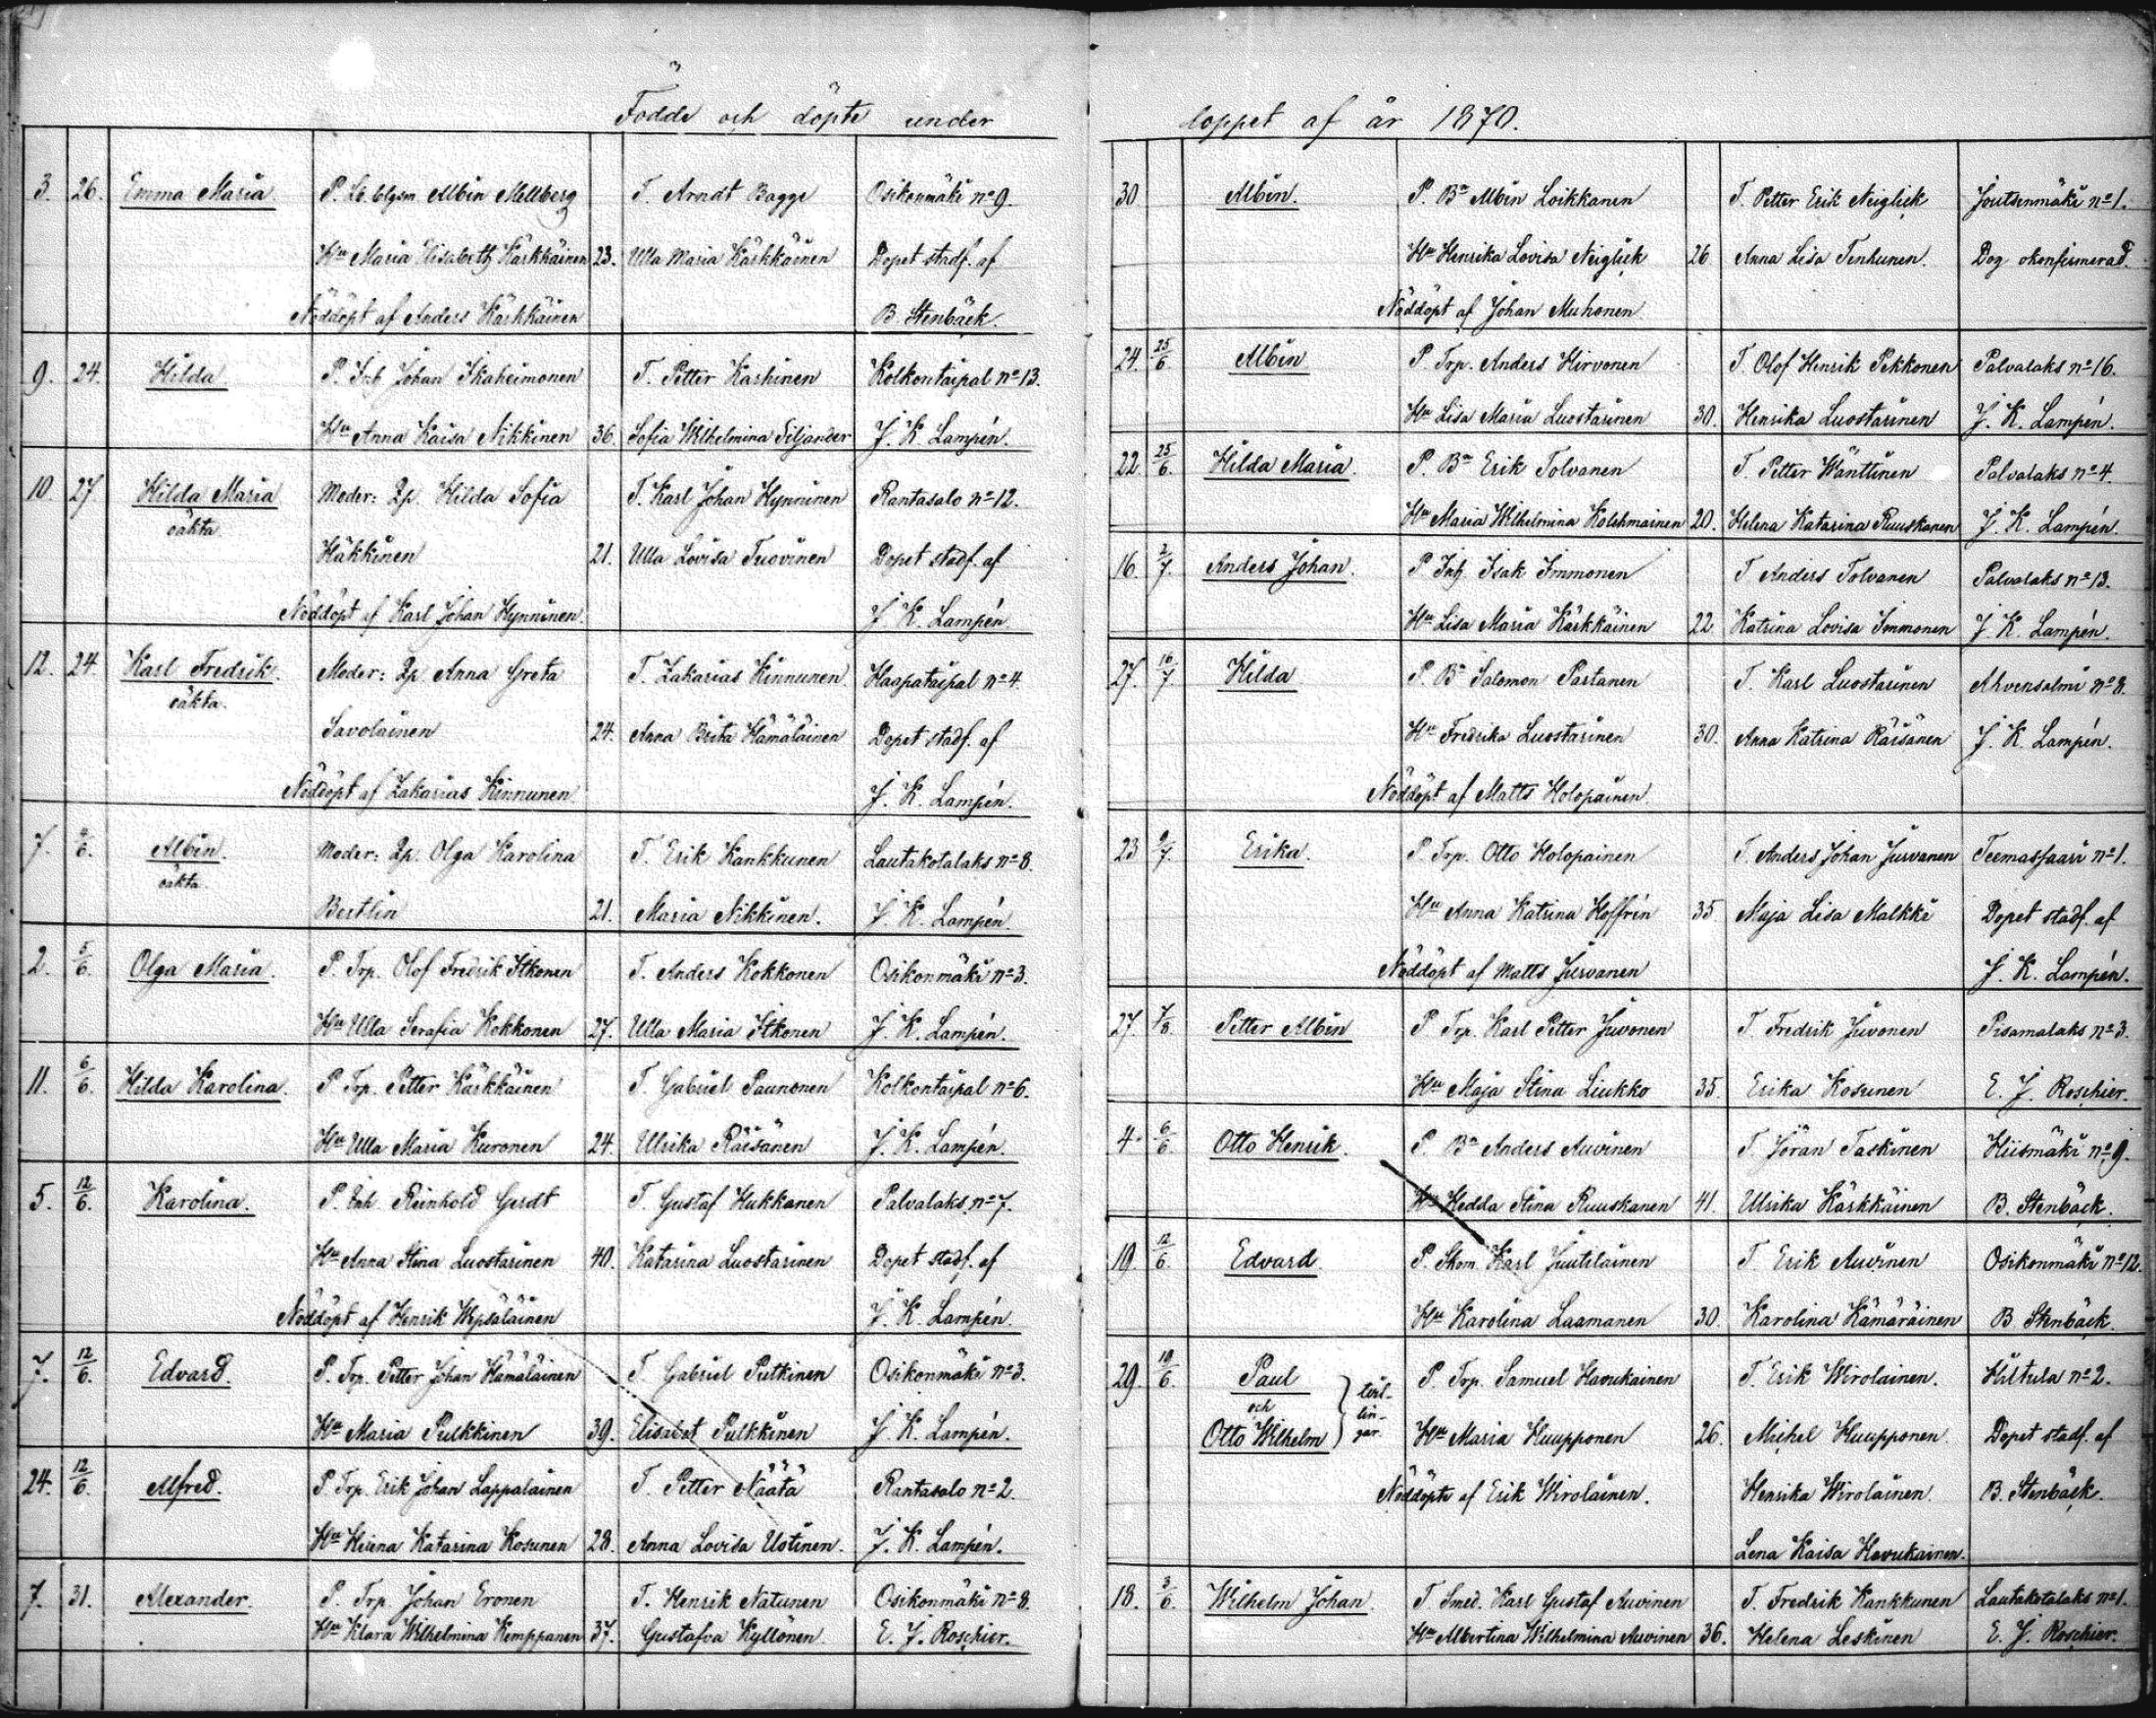 Födde och döpte under
3. 26. Emma Maria P. Albin Mellberg T. Arndt Bagge Osikonmäki nº 9.
Hu Maria Elisabeth Kärkkäinen 23. Ulla Maria Kärkkäinen Dopet stadf. af
Nöddöpt af Anders Kärkkäinen B. Stenbäck.
9. 24. Hilda P. Inh Johan Ikäheimonen T. Petter Kaskinen Kolkontaipal nº 13.
Hu Anna Kaisa Nikkinen 36. Sofia Wilhelmina Siljander J. K. Lampén.
10 27 Hilda Maria Moder: Qp. Hilda Sofia T. Karl Johan Hynninen Rantasalo nº 12.
oäkta
Häkkinen 21. Ulla Lovisa Tuovinen Dopet stadf. af
Nöddöpt af Karl Johan Hynninen J. K. Lampén
12. 24 Karl Fredrik Moder: Qp. Anna Greta T. Zakarias Kinnunen Haapataipal nº 4.
oäkta.
Savolainen 24. Anna Brita Hämäläinen Dopet stadf. af
Nöddöpt af Zakarias Kinnunen J. K. Lampén.
7. Albin. Moder: Qp. Olga Karolina T. Erik Kankkunen Lautakotalaks nº 8.
oäkta
Bertlin 21. Maria Nikkinen. J. K. Lampén.
2. 5/6. Olga Maria. P. Trp. Olof Fredrik Itkonen T. Anders Kokkonen Osikonmäki nº 3.
Hu Ulla Serafia Kokkonen 27. Ulla Maria Itkonen J. K. Lampén.
11. 6/6. Hilda Karolina. P. Trp. Petter Kärkkäinen T. Gabriel Paunonen Kolkontaipal nº 6.
Hu Ulla Maria Kuronen 24. Ulrika Räisänen J. K. Lampén.
5. 12/6. Karolina. P. Inh. Reinhold Gerdt T. Gustaf Hukkanen Palvalaks nº 7.
Hu Anna Stina Luostarinen 40. Katarina Luostarinen Dopet stadf. af
Nöddöpt af Henrik Wepsäläinen J. K. Lampén.
7. 12/6. Edvard. P. Trp. Petter Johan Hämäläinen T. Gabriel Putkinen Osikonmäki nº 3.
Hu Maria Pulkkinen 39. Elisabet Pulkkinen J. K. Lampén.
24. 12/6. Alfred. P. Trp. Erik Johan Lappalainen T. Petter Näätä Rantasalo nº 2.
Hu Helena Katarina Kosunen 28. Anna Lovisa Ustinen. J. K. Lampén.
7. 31. Alexander. P. Trp. Johan Eronen T. Henrik Natunen Osikonmäki nº 8.
Hu Klara Wilhelmina Kemppanen 37. Gustafva Kyllönen E. J. Roschier.
loppet af år 1870.
30 Albin. P. Bn Albin Loikkanen T. Petter Erik Neiglick Joutsenmäki nº 1.
Hu Henrika Lovisa Neiglick 26 Anna Lisa Tenhunen. Dog okonfirmerad.
Nöddöpt af Johan Muhonen
24. 25/6 Albin P. Trp. Anders Hirvonen T Olof Henrik Pekkonen Palvalaks nº 16.
Hu Lisa Maria Luostarinen 30. Henrika Luostarinen J. K. Lampén.
22 25/6. Hilda Maria. P. Bn Erik Tolvanen T. Petter Wänttinen Palvalaks nº 4.
Hu Maria Wilhelmina Kolehmainen 20. Helena Katarina Ruuskanen J. K. Lampén.
16. 2/7. Anders Johan. P Inh Isak Immonen T Anders Tolvanen Palvalaks nº 13.
Hu Lisa Maria Kärkkäinen 22 Katrina Lovisa Immonen J. K. Lampén.
27. 10/7. Hilda P. Bn Salomon Partanen T. Karl Luostarinen Ahvensalmi nº 8.
Hu Fredrika Luostarinen 30. Anna Katrina Räisänen J. K. Lampén.
Nöddöpt af Matts Holopainen
23 9/7. Erika. P. Trp. Otto Holopainen T. Anders Johan Jurvanen Teemassaari nº 1.
Hu Anna Katrina Hoffrén 35 Maja Lisa Malkki Dopet stadf. af
Nöddöpt af Matts Jurvanen J. K. Lampén.
27. 7/8. Petter Albin P Trp. Karl Petter Juvonen T. Fredrik Juvonen Pisamalaks nº 3.
Hu Maja Stina Liukko 35. Erika Kosunen E. J. Roschier.
4. 6/6. Otto Henrik. P. Bn Anders Auvinen T Jöran Taskinen Hiismäki nº 9.
Hu Hedda Stina Ruuskanen 41. Ulrika Kärkkäinen B. Stenbäck.
19. 12/6. Edvard. P. Skom. Karl Juutilainen T. Erik Auvinen Osikonmäki nº 12.
Hu Karolina Laamanen 30. Karolina Kämäräinen B. Stenbäck.
29. 19/6. Paul P. Trp. Samuel Havukainen T. Erik Wirolainen. Hiltula nº 2.
och
Otto Wilhelm tvil-lin-gar. Hu Maria Huupponen 26. Michel Huupponen. Dopet stadf. af
Nöddöpte af Erik Wirolainen. Henrika Wirolainen. B. Stenbäck.
Lena Kaisa Havukainen.
18. 3/6. Wilhelm Johan T. Smed. Karl Gustaf Auvinen T. Fredrik Kankkunen Lautakotalaks nº 1.
Hu Albertina Wilhelmina Auvinen 36. Helena Leskinen E. J. Roschier.